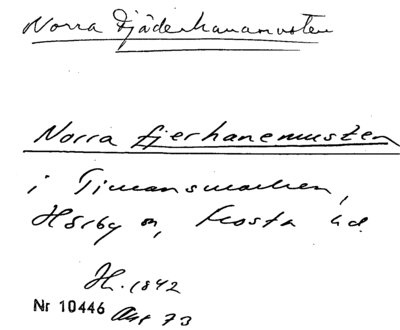 Norra Fjäderhanamosten
Norra fjerhanemusten
i Timansmarken,
Hörby sn, Frosta hd.
Hl. 1842
Nr 10446 Akt 73